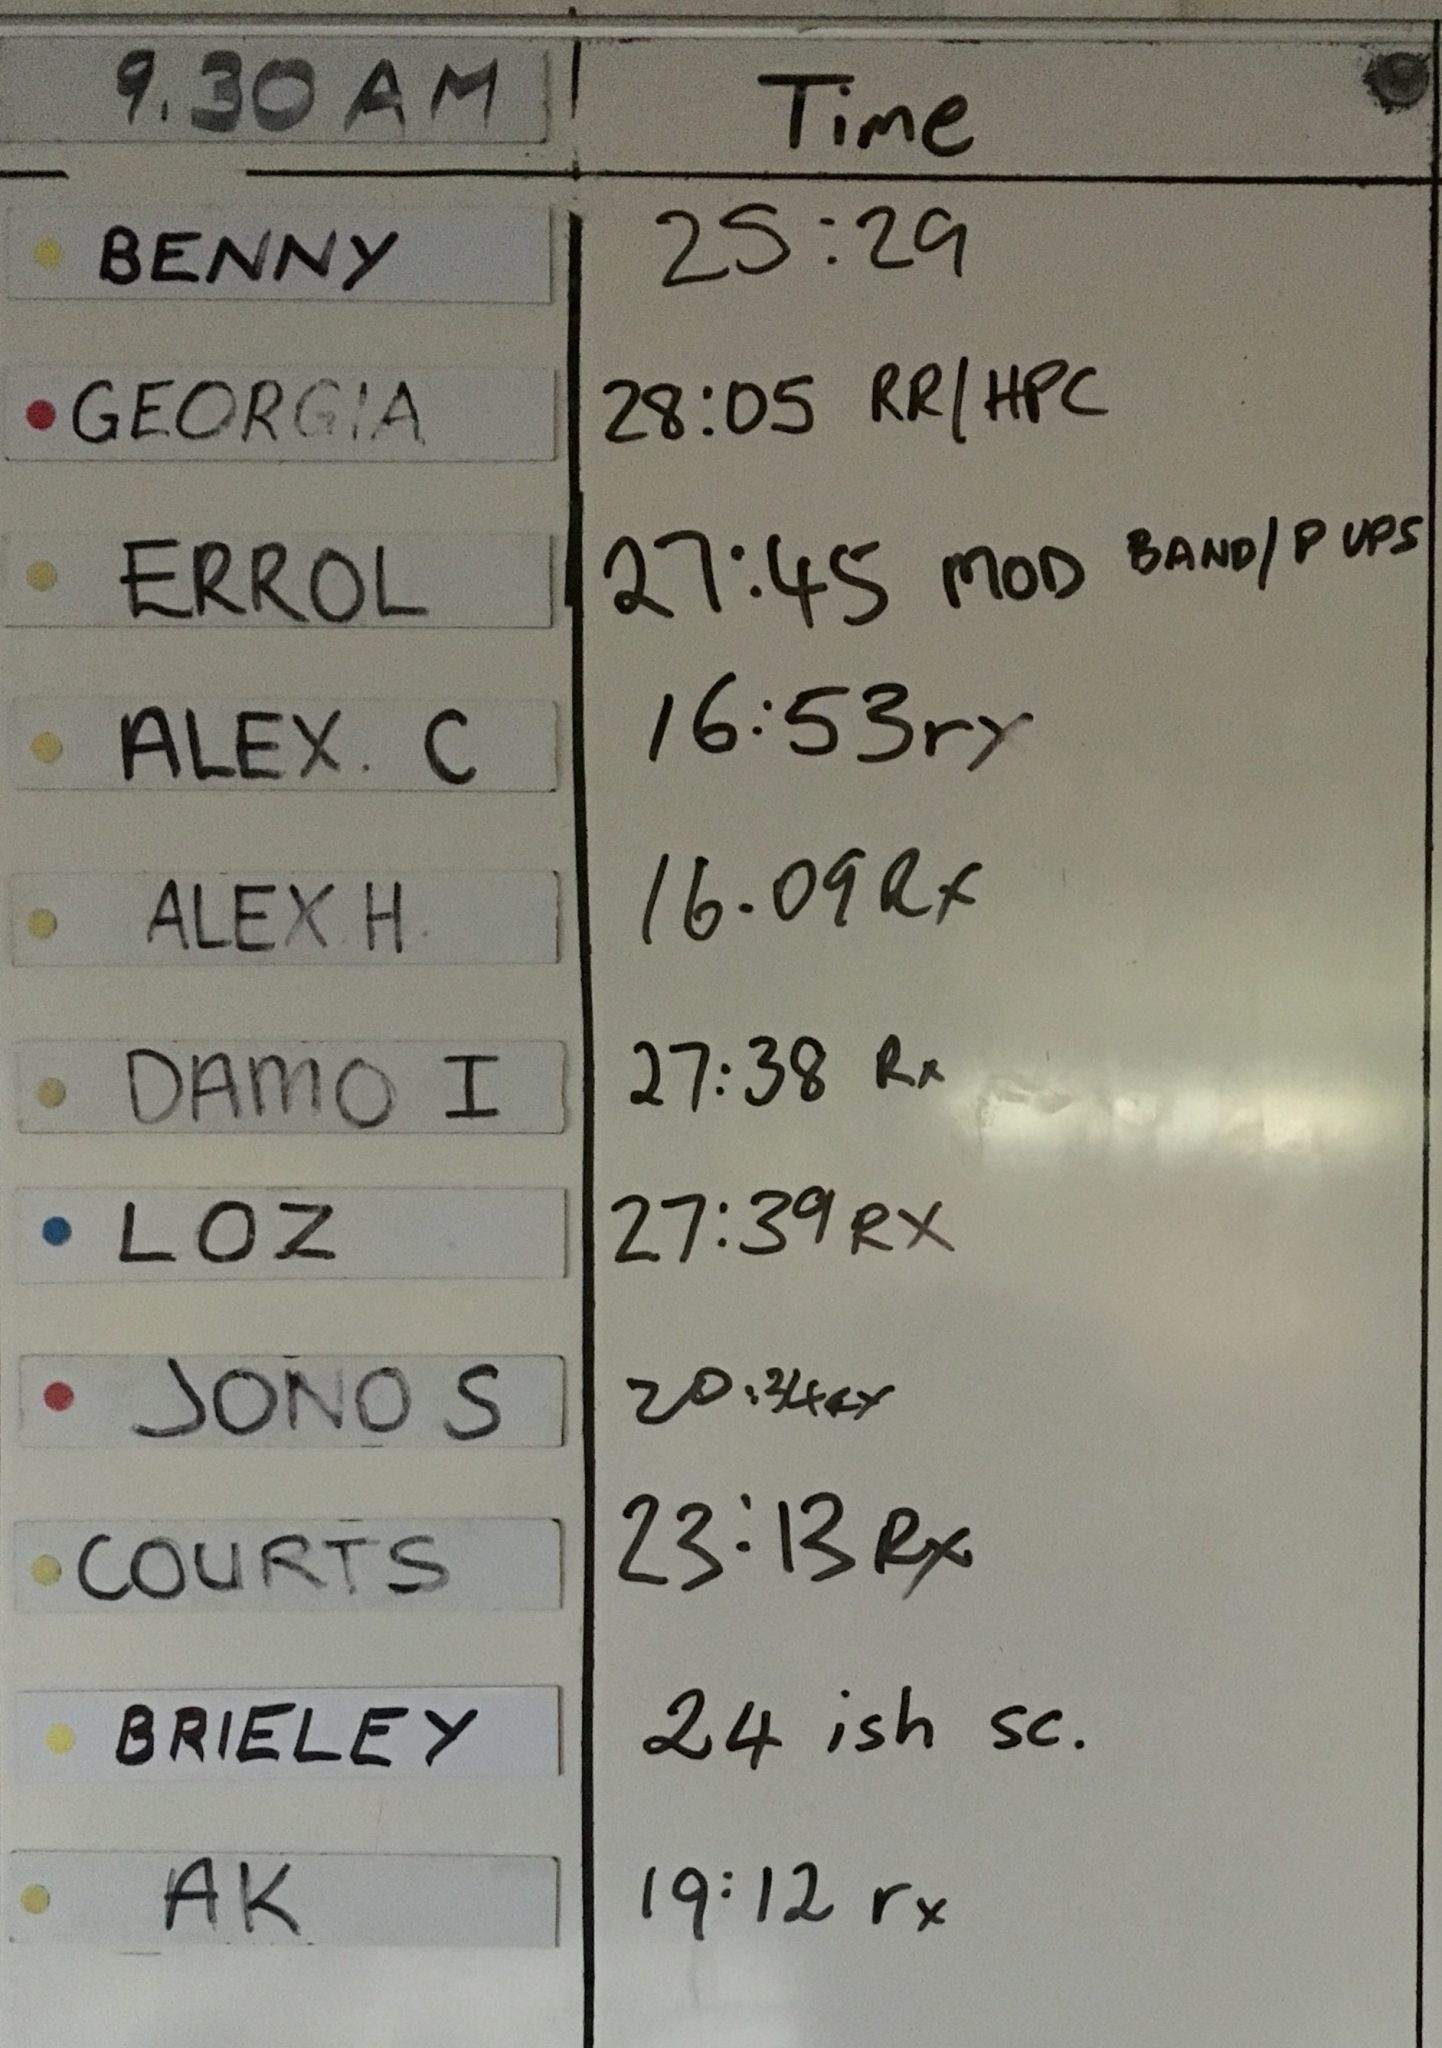 9.30 AM Time
BENNY 25:29
GEORGIA 28:05 RR/HPC
ERROL 27:45 MOD BAND/P UPS
ALEX. C 16:53 rx
ALEX.H. 16.09 Rx
DAMO I 27:38 Rx
LOZ 27:39 RX
JONO S 20:34 rx
COURTS 23:13 Rx
BRIELEY 24 ish sc.
AK 19:12 rx